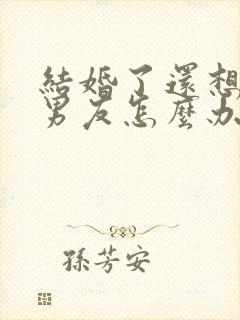 結婚了還想
男友怎麼办
孫芳安